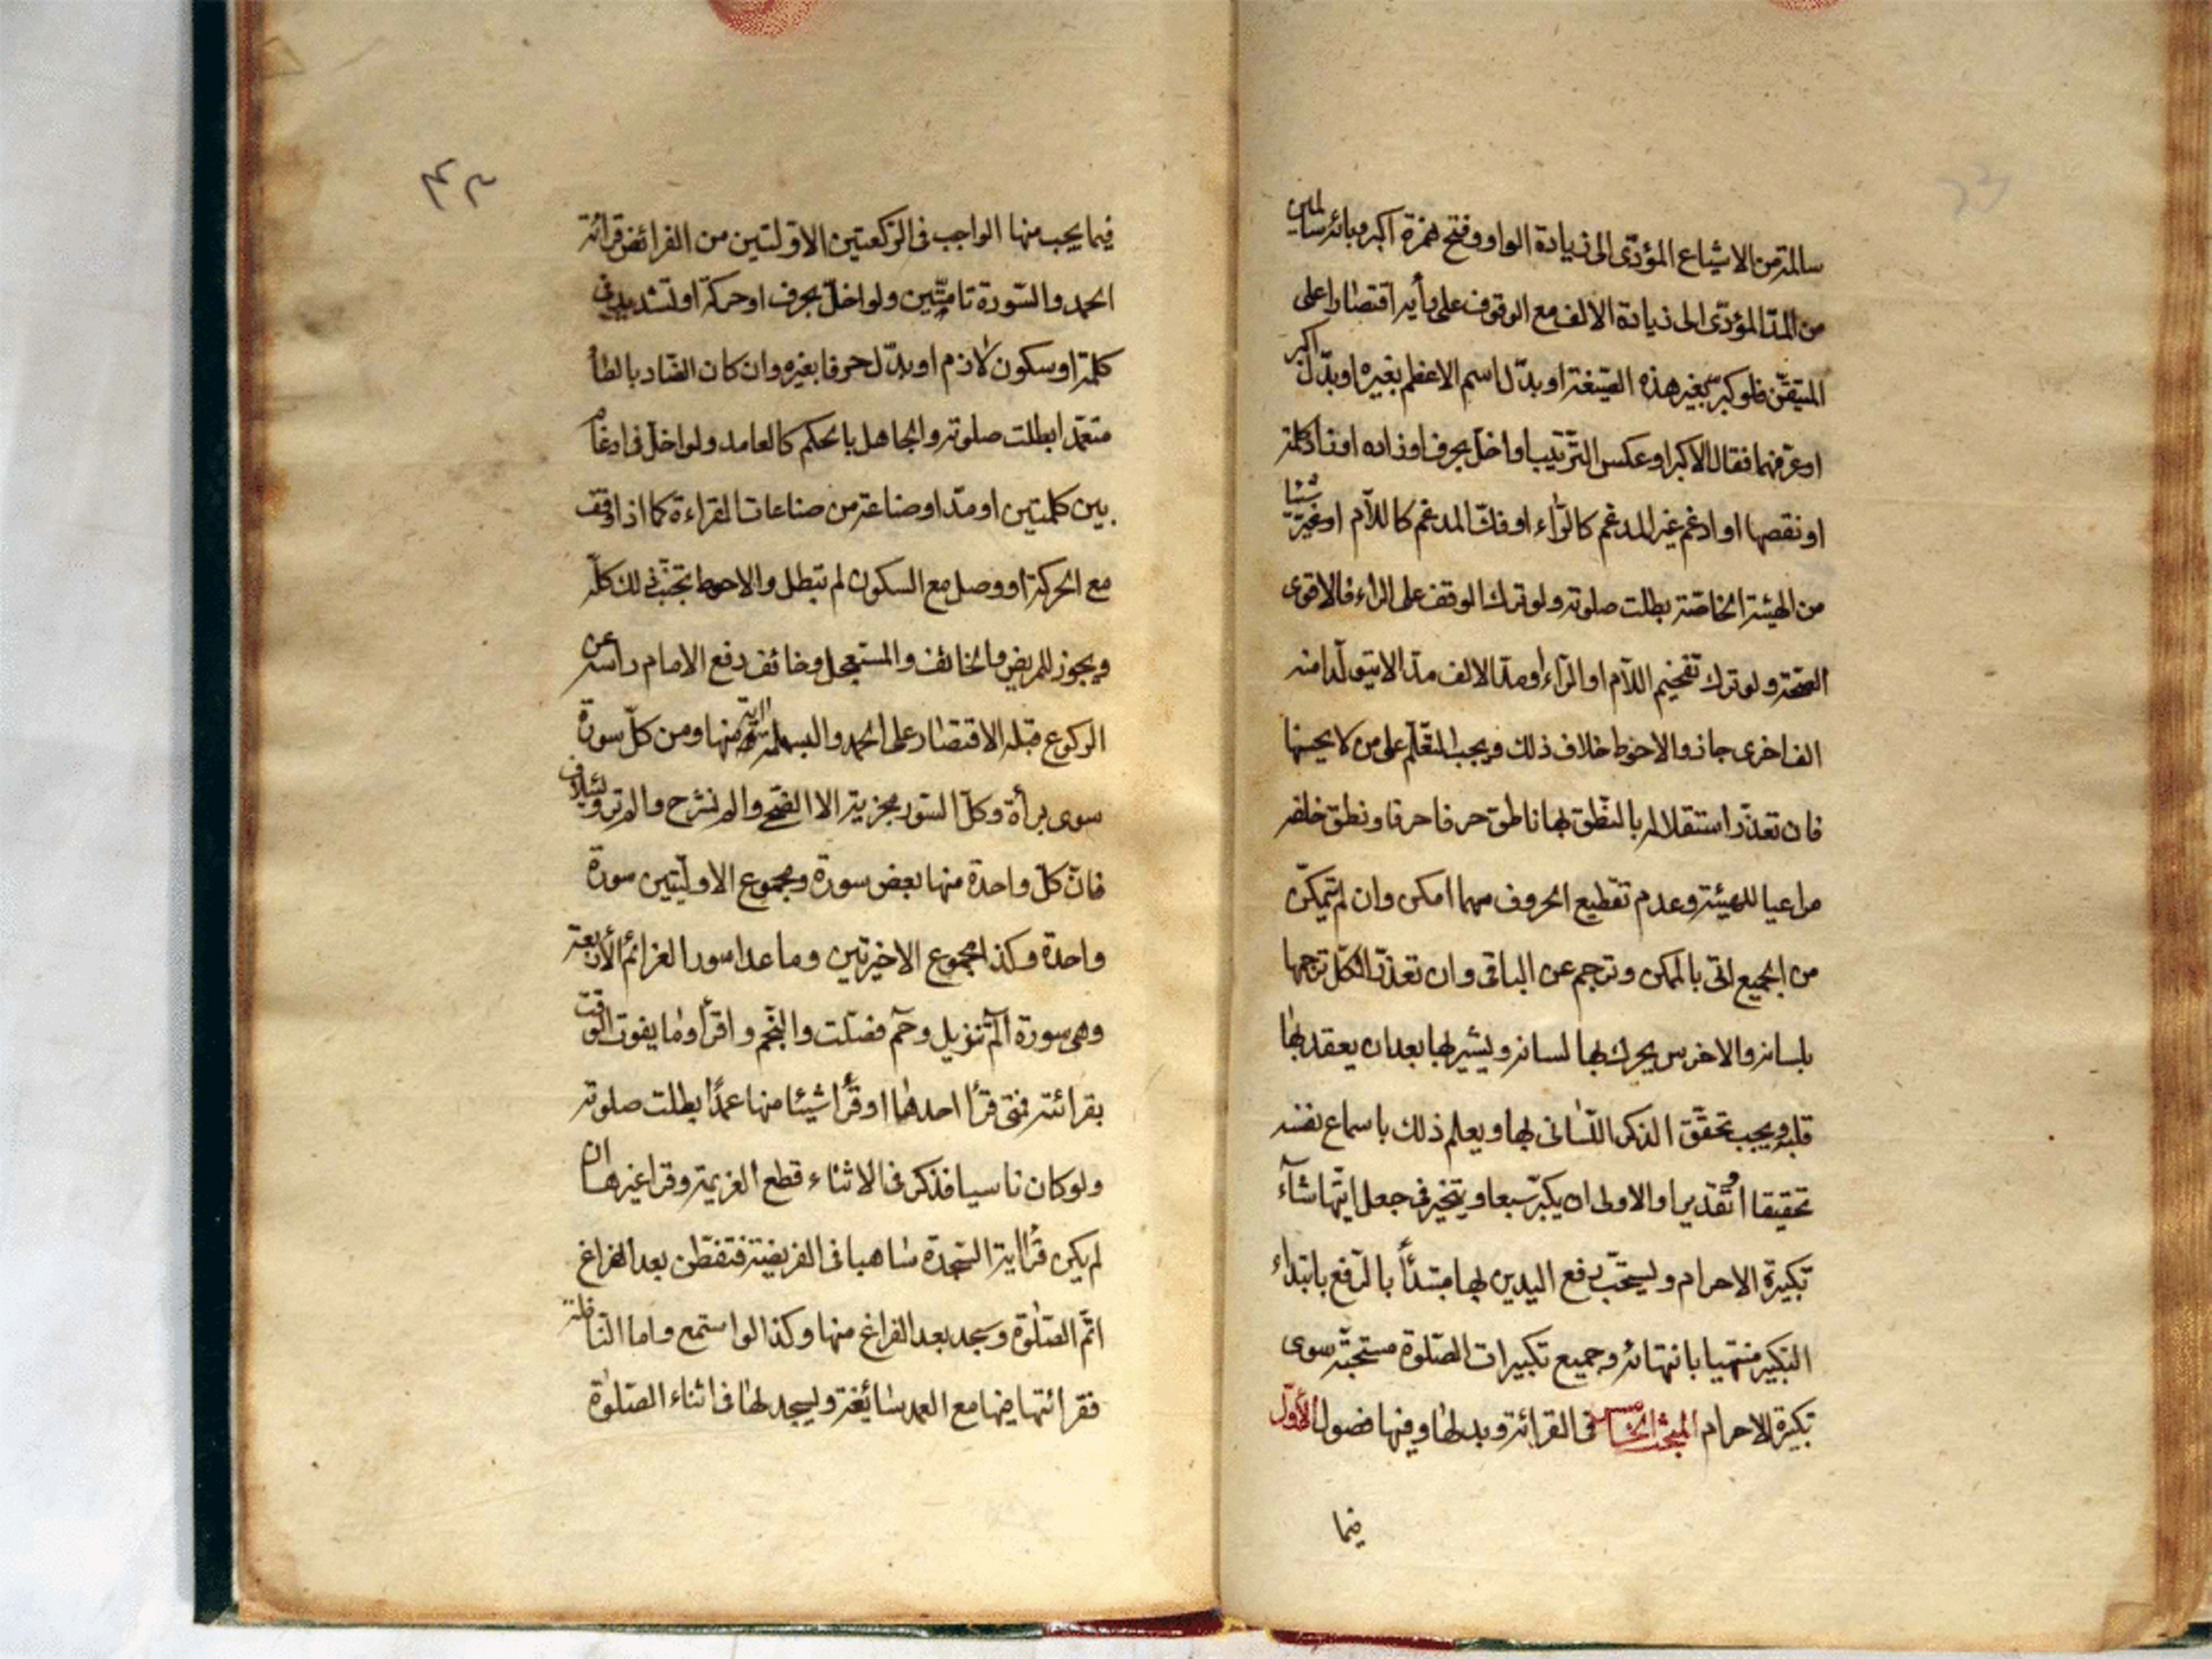 سالمة من الاشباع المؤدّى الى زيادة الواو وفتح همزة اكبر وبائه سالمين
من المدّ المؤدّى الى زيادة الالف مع الوقوف على رأيه اقتصارا على
المتيقّن فلو كبّر بغير هذه الصّيغة او بدّل اسم الاعظم بغيره او بدّل اكبر
او عرّفهما فقال الاكبر او عكس التّرتيب او اخلّ بحرف او زاده او زاد كلمة
او نقصها او ادغم غير المدغم كالرّاء او فكّ المدغم كاللّام او غيّر شيئا
من الهيئة الخاصّة بطلت صلوته ولو ترك الوقف على الراء فالاقوى
الصّحّة ولو ترك تفخيم اللّام او الرّاء او مدّ الالف مدّا لا يتولّد منه
الف اخرى جاز والاحوط خلاف ذلك ويجب التّعلّم على من لا يحسنها
فان تعذّر استقلاله بالنّطق بها ناطق حرفا حرفا ونطق خلفه
مراعيا للهيئة وعدم تقطيع الحروف مهما امكن وان لم يتمكّن
من الجميع اتى بالممكن وترجم عن الباقى وان تعذّر الكلّ ترجمها
بلسانه والاخرس يحرك بها لسانه ويشير بها بعد ان يعقد بها
قلبه ويجب تحقّق الذكر اللّسانى بها ويعلم ذلك باسماع نفسه
تحقيقا او تقديرا والاولى ان يكبّر سبعا ويتخيّر فى جعل ايّتها شآء
تكبيرة الاحرام ويستحبّ رفع اليدين بها مبتدأ بالرّفع بابتداء
التكبير منتهيا بانتهائه وجميع تكبيرات الصّلوة مستحبّة سوى
تكبيرة الاحرام المبحث الخامس فى القرائة وبدلها وفيها فصول الأوّل
فيما
٤٣
فيما يجب منها الواجب فى الرّكعتين الاوّلتين من الفرائض قرائة
الحمد والسّورة تامّتين ولو اخلّ بحرف او حركة او تشديد فى
كلمة او سكون لازم او بدّل حرفا بغيره وان كان الضّاد بالظّأ
متعمّدا بطلت صلوته والجاهل بالحكم كالعامد ولو اخلّ فى ادغام
بين كلمتين او مدّ او صناعة من صناعات القراءة كما اذا وقف
مع الحركة او وصل مع السكون لم تبطل والاحوط تجنّب ذلك كلّه
ويجوز للمريض والخائف والمستعجل وخائف رفع الامام رأسه عن
الركوع قبله الاقتصار على الحمد والبسملة اية منها ومن كلّ سورة
سوى برأة وكلّ السّور مجزية الا الضّحى والم نشرح والم تر ولئيلاف
فانّ كلّ واحدة منها بعض سورة ومجموع الاوليّتين سورة
واحدة وكذا مجموع الاخيرتين وما عدا سور العزائم الأربعة
وهى سورة الٓمٓ تنزيل وحٓمٓ فصّلت والنّجم واقرأ وما يفوت الوقت
بقرائته فمتى قرأ احدها او قرأ شيئا منها عمدًا بطلت صلوته
ولو كان ناسيا فذكر فى الاثناء قطع العزيمة وقرا غيرها ان
لم يكن قرأ اية السّجدة ساهيا فى الفريضة فتفطّن بعد الفراغ
اتمّ الصّلوة وسجد بعد الفراغ منها وكذا لو استمع واما النّافلة
فقرائتها فيها مع العمد سائغة ويسجد لها فى اثناء الصّلوة